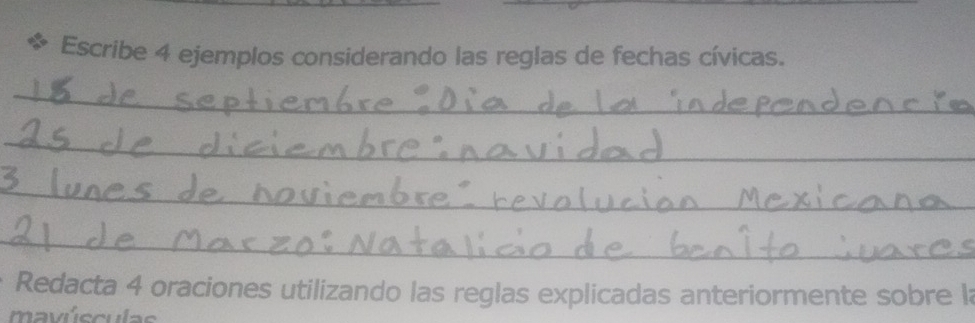 ❖ Escribe 4 ejemplos considerando las reglas de fechas cívicas.
15 de septiembre: Dia de la independencia
25 de diciembre: navidad
3 lunes de noviembre: revolucion Mexicana
21 de Marzo: Natalicio de benito juares
Redacta 4 oraciones utilizando las reglas explicadas anteriormente sobre la
mayúsculas